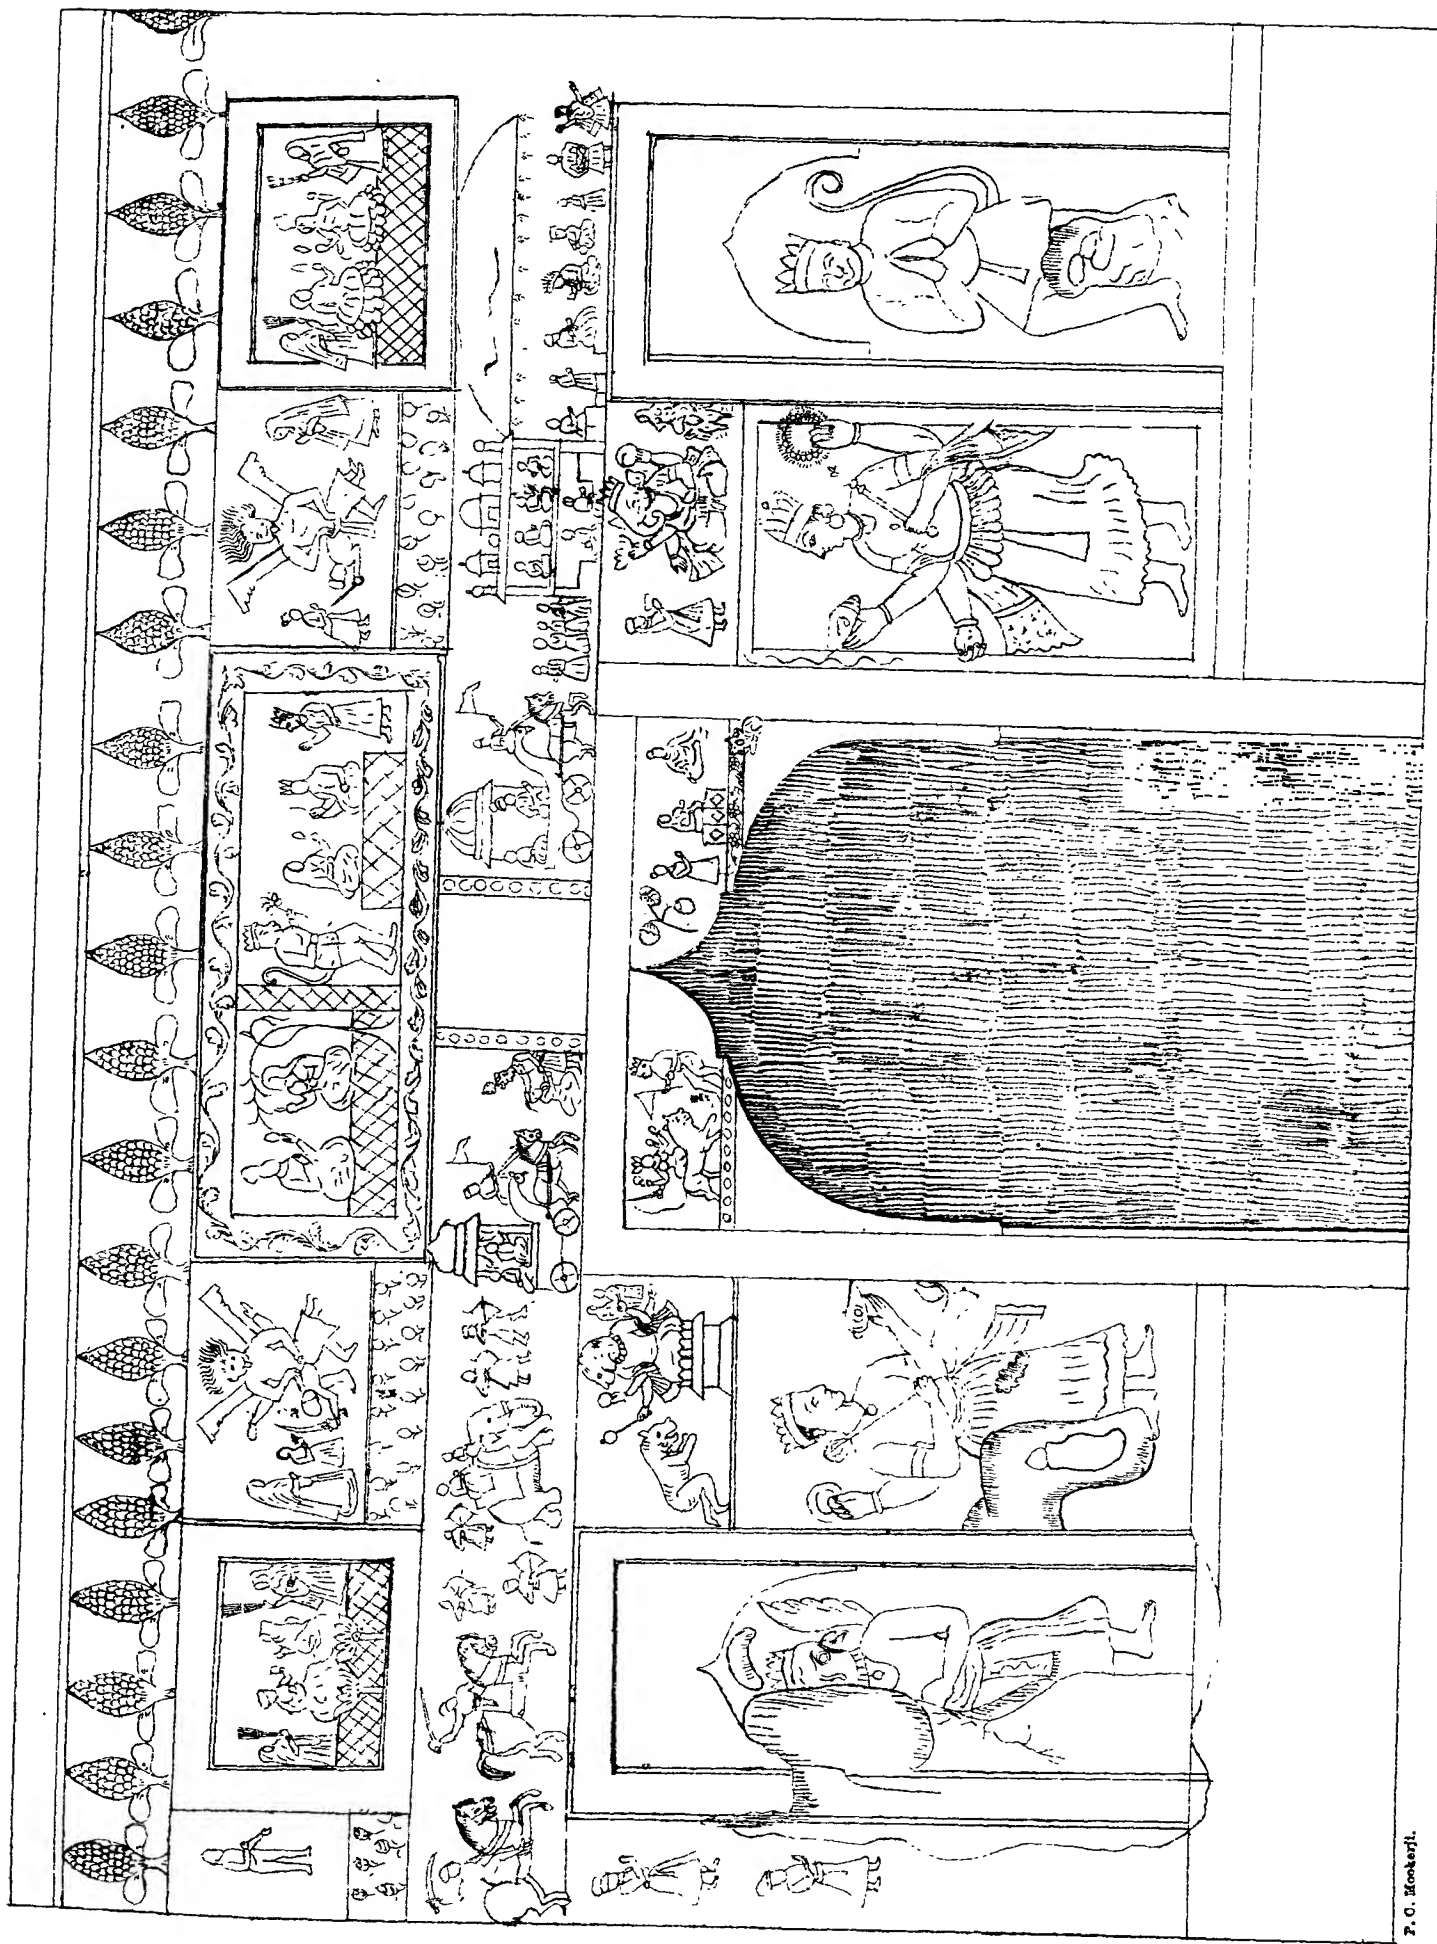 P. C. Mookerji.